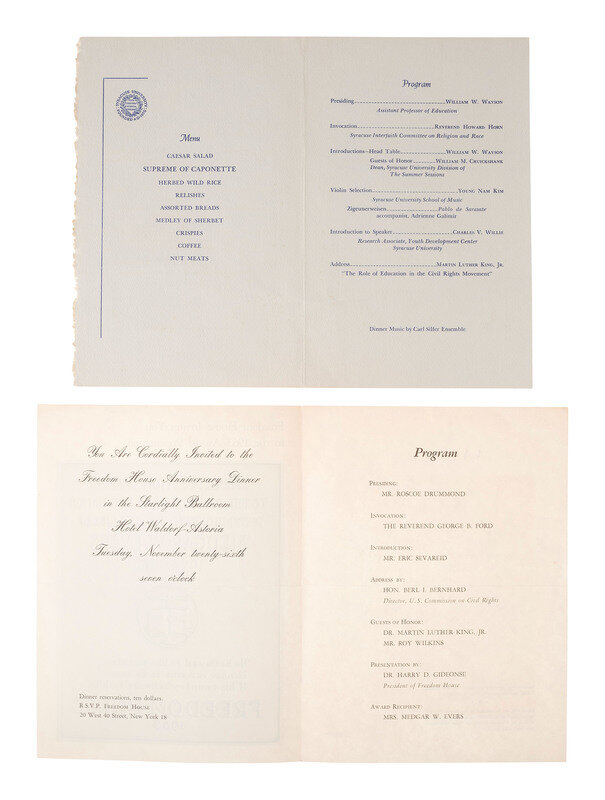 Menu
CAESAR SALAD
SUPREME OF CAPONETTE
HERBED WILD RICE
RELISHES
ASSORTED BREADS
MEDLEY OF SHERBET
CRISPIES
COFFEE
NUT MEATS
Program
Presiding WILLIAM W. WAYSON
Assistant Professor of Education
Invocation REVEREND HOWARD HORN
Syracuse Interfaith Committee on Religion and Race
Introductions—Head Table WILLIAM W. WAYSON
Guests of Honor WILLIAM M. CRUICKSHANK
Dean, Syracuse University Division of
The Summer Sessions
Violin Selection YOUNG NAM KIM
Syracuse University School of Music
Zigeunerweisen Pablo de Sarasate
accompanist, Adrienne Galimir
Introduction to Speaker CHARLES V. WILLIE
Research Associate, Youth Development Center
Syracuse University
Address MARTIN LUTHER KING, JR.
"The Role of Education in the Civil Rights Movement"
Dinner Music by Carl Silfer Ensemble
You Are Cordially Invited to the
Freedom House Anniversary Dinner
in the Starlight Ballroom
Hotel Waldorf-Astoria
Tuesday, November twenty-sixth
seven o'clock
Dinner reservations, ten dollars.
R.S.V.P. FREEDOM HOUSE
20 West 40 Street, New York 18
Program
PRESIDING:
MR. ROSCOE DRUMMOND
INVOCATION:
THE REVEREND GEORGE B. FORD
INTRODUCTION:
MR. ERIC SEVAREID
ADDRESS BY:
HON. BERL I. BERNHARD
Director, U.S. Commission on Civil Rights
GUESTS OF HONOR:
DR. MARTIN LUTHER KING, JR.
MR. ROY WILKINS
PRESENTATION BY:
DR. HARRY D. GIDEONSE
President of Freedom House
AWARD RECIPIENT:
MRS. MEDGAR W. EVERS